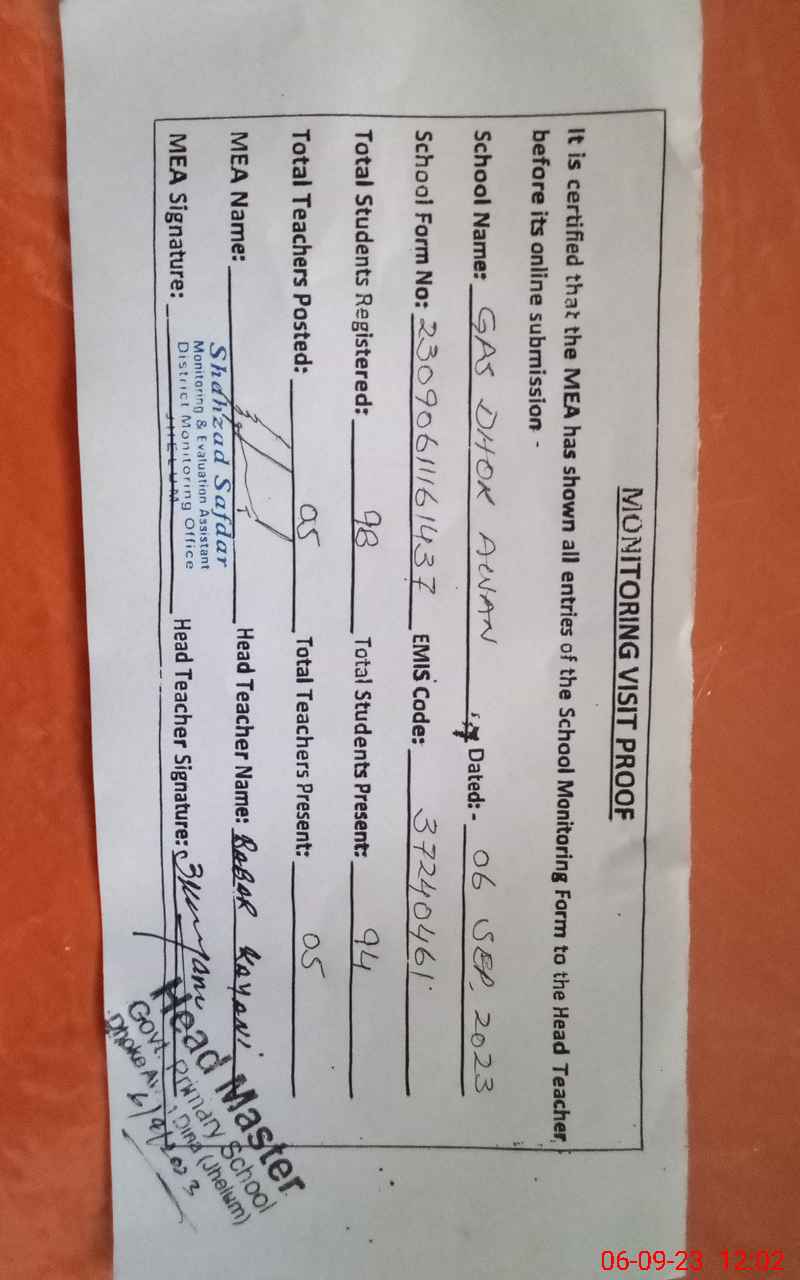 MONITORING VISIT PROOF
It is certified that the MEA has shown all entries of the School Monitoring Form to the Head Teacher
before its online submission -
School Name: GAS DHOK AWAN Dated:- 06 SEP, 2023
School Form No: 23090611161437 EMIS Code: 37240461
Total Students Registered: 98 Total Students Present: 94
Total Teachers Posted: 05 Total Teachers Present: 05
MEA Name: Head Teacher Name: BABAR KAYANI
Shahzad Safdar
Monitoring & Evaluation Assistant
District Monitoring Office
JHELUM
MEA Signature: Head Teacher Signature:
Head Master
Govt. Primary School
Dhoke Dina (Jhelum)
6/9/2023
06-09-23 12:02